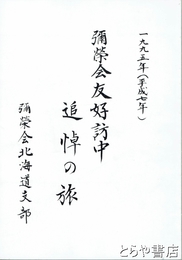 一九九五年(平成七年)
彌榮会友好訪中
追悼の旅
彌榮会北海道支部
とらや書店